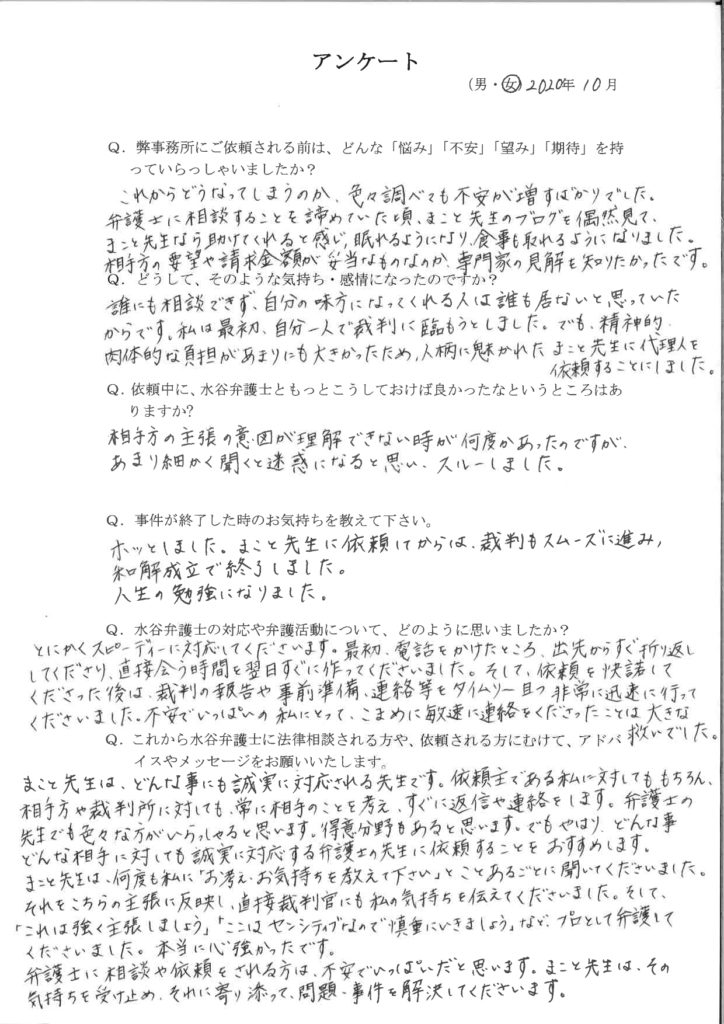 アンケート
(男・女) 2020年 10月
Q．弊事務所にご依頼される前は、どんな「悩み」「不安」「望み」「期待」を持
っていらっしゃいましたか？
これからどうなってしまうのか、色々調べても不安が増すばかりでした。
弁護士に相談することを諦めていた頃、まこと先生のブログを偶然見て、
まこと先生なら助けてくれると感じ、眠れるようになり、食事も取れるようになりました。
相手方の要望や請求金額が妥当なものなのか、専門家の見解を知りたかったです。
Q．どうして、そのような気持ち・感情になったのですか？
誰にも相談できず、自分の味方になってくれる人は誰も居ないと思っていた
からです。私は最初、自分一人で裁判に臨もうとしました。でも、精神的
肉体的な負担があまりにも大きかったため、人柄に魅かれたまこと先生に代理人を
依頼することにしました。
Q．依頼中に、水谷弁護士ともっとこうしておけば良かったなというところはあ
りますか?
相手方の主張の意図が理解できない時が何度かあったのですが、
あまり細かく聞くと迷惑になると思い、スルーしました。
Q．事件が終了した時のお気持ちを教えて下さい。
ホッとしました。まこと先生に依頼してからは、裁判もスムーズに進み、
和解成立で終了しました。
人生の勉強になりました。
Q．水谷弁護士の対応や弁護活動について、どのように思いましたか？
とにかくスピーディーに対応してくださいます。最初、電話をかけたところ、出先からすぐ折り返し
してくださり、直接会う時間を翌日すぐに作ってくださいました。そして、依頼を快諾して
くださった後は、裁判の報告や事前準備、連絡等をタイムリー且つ非常に迅速に行って
くださいました。不安でいっぱいの私にとって、こまめに敏速に連絡をくださったことは大きな
救いでした。
Q．これから水谷弁護士に法律相談される方や、依頼される方にむけて、アドバ
イスやメッセージをお願いいたします。
まこと先生は、どんな事にも誠実に対応される先生です。依頼主である私に対してももちろん、
相手方や裁判所に対しても、常に相手のことを考え、すぐに返信や連絡をします。弁護士の
先生でも色々な方がいらっしゃると思います。得意分野もあると思います。でもやはり、どんな事
どんな相手に対しても誠実に対応する弁護士の先生に依頼することをおすすめします。
まこと先生は、何度も私に「お考え・お気持ちを教えて下さい」とことあるごとに聞いてくださいました。
それをこちらの主張に反映し、直接裁判官にも私の気持ちを伝えてくださいました。そして、
「これは強く主張しましょう」「ここはセンシティブなので慎重にいきましょう」など、プロとして弁護して
くださいました。本当に心強かったです。
弁護士に相談や依頼をされる方は、不安でいっぱいだと思います。まこと先生は、その
気持ちを受け止め、それに寄り添って、問題・事件を解決してくださいます。